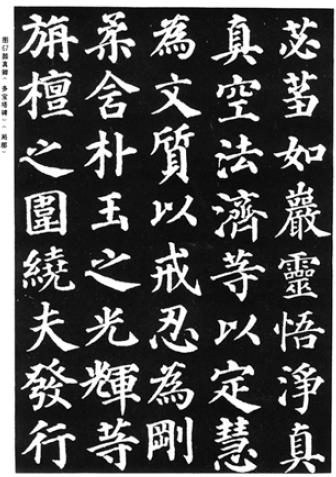 苾蒭如巖靈悟淨真
真空法濟等以定慧
為文質以戒忍為剛
柔含朴玉之光輝等
旃檀之圍繞夫發行
图67颜真卿《多宝塔碑》(局部)